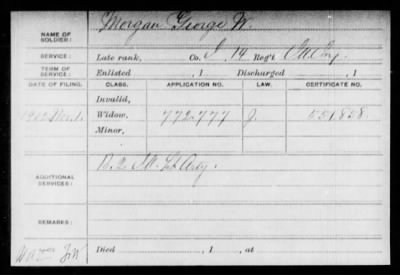 NAME OF SOLDIER: Morgan George W.
SERVICE: Late rank, Co. I, 14 Reg't
TERM OF SERVICE: Enlisted , 1 Discharged , 1
DATE OF FILING. CLASS. APPLICATION NO. LAW. CERTIFICATE NO.
Invalid,
Nov. 1 Widow, 772.777 551.828
Minor,
ADDITIONAL SERVICES: Lt Arty.
REMARKS:
Died , 1 , at